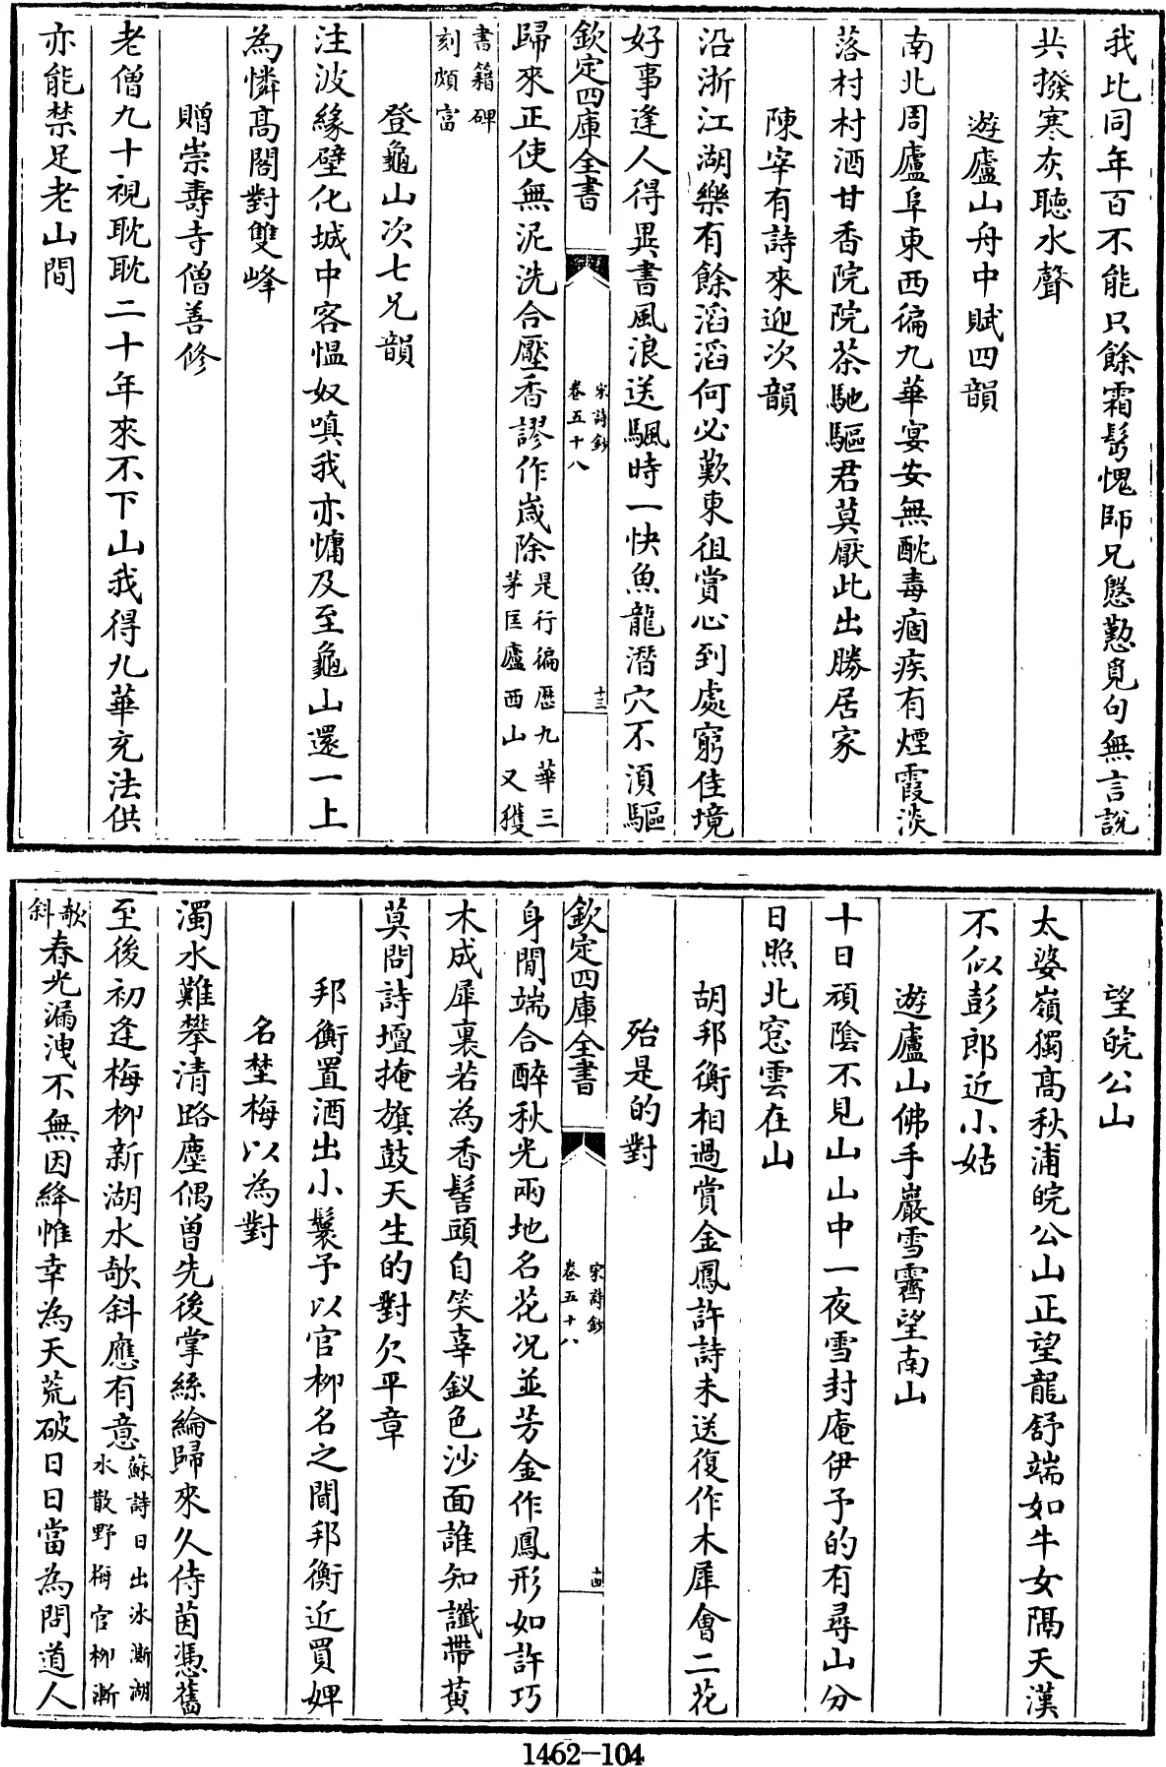 我比同年百不能只餘霜髩愧師兄慇懃覓句無言說
共撥寒灰聽水聲
遊廬山舟中賦四韻
南北周廬阜東西徧九華宴安無酖毒痼疾有煙霞淡
落村村酒甘香院院茶馳驅君莫厭此出勝居家
陳宰有詩來迎次韻
沿浙江湖樂有餘滔滔何必歎東徂賞心到處窮佳境
好事逢人得異書風浪送颿時一快魚龍潛穴不湏驅
欽定四庫全書
宋詩鈔
卷五十八
十三
歸來正使無泥洗合壓香醪作嵗除是行徧歴九華三
茅匡廬西山又獲
書籍碑
刻頗富
登龜山次七兄韻
注波緣壁化城中客愠奴嗔我亦慵及至龜山還一上
為憐髙閣對雙峰
贈崇壽寺僧善修
老僧九十視耽耽二十年來不下山我得九華充法供
亦能禁足老山間
望皖公山
太婆嶺獨高秋浦皖公山正望龍舒端如牛女隔天漢
不似彭郎近小姑
遊廬山佛手巖雪霽望南山
十日頑陰不見山山中一夜雪封庵伊予的有尋山分
日照北窓雲在山
胡邦衡相過賞金鳳許詩未送復作木犀會二花
殆是的對
身閒端合醉秋光兩地名花况並芳金作鳳形如許巧
木成犀裏若為香髻頭自笑辜釵色沙面誰知讖帶黄
莫問詩壇掩旗鼓天生的對欠平章
邦衡置酒出小鬟予以官柳名之聞邦衡近買婢
名埜梅以為對
濁水難攀清路塵偶曽先後掌絲綸歸來久侍茵憑舊
至後初逢梅柳新湖水欹斜應有意蘇詩日出冰澌湖
水散野梅官柳漸
欹
斜春光漏洩不無因絳帷幸為天荒破日日當為問道人
欽定四庫全書
宋詩鈔
卷五十八
十四
1462-104